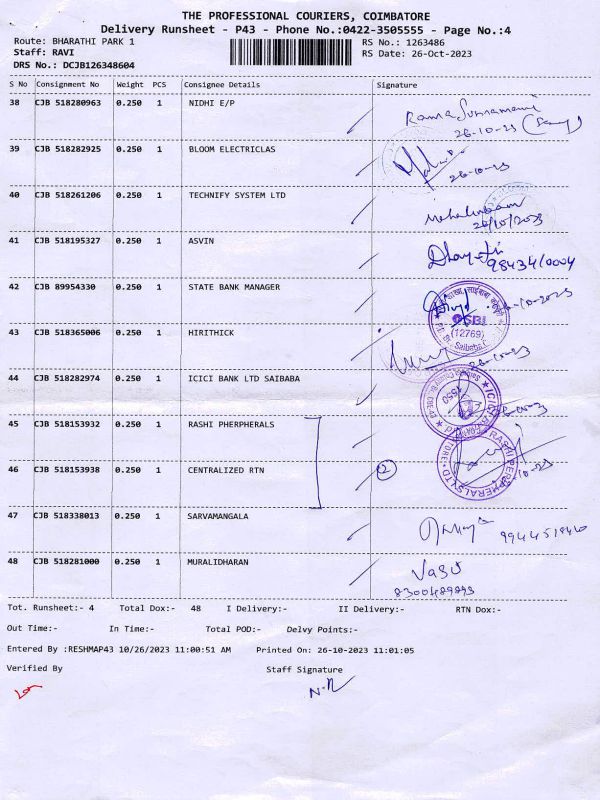 THE PROFESSIONAL COURIERS, COIMBATORE
Delivery Runsheet - P43 - Phone No.:0422-3505555 - Page No.:4
Route: BHARATHI PARK 1 RS No.: 1263486
Staff: RAVI RS Date: 26-Oct-2023
DRS No.: DCJB126348604
S No Consignment No Weight PCS Consignee Details Signature
38 CJB 518280963 0.250 1 NIDHI E/P
26-10-23
39 CJB 518282925 0.250 1 BLOOM ELECTRICLAS
26-10-23
40 CJB 518261206 0.250 1 TECHNIFY SYSTEM LTD
26/10/2023
41 CJB 518195327 0.250 1 ASVIN
98434/0004
42 CJB 89954330 0.250 1 STATE BANK MANAGER
SBI
(12769)
43 CJB 518365006 0.250 1 HIRITHICK
26-10-23
44 CJB 518282974 0.250 1 ICICI BANK LTD SAIBABA
45 CJB 518153932 0.250 1 RASHI PHERPHERALS
46 CJB 518153938 0.250 1 CENTRALIZED RTN 2
RASHI PERIPHERALS LTD
47 CJB 518338013 0.250 1 SARVAMANGALA
48 CJB 518281000 0.250 1 MURALIDHARAN Vasu
8300489893
Tot. Runsheet:- 4 Total Dox:- 48 I Delivery:- II Delivery:- RTN Dox:-
Out Time:- In Time:- Total POD:- Delvy Points:-
Entered By :RESHMAP43 10/26/2023 11:00:51 AM Printed On: 26-10-2023 11:01:05
Verified By Staff Signature